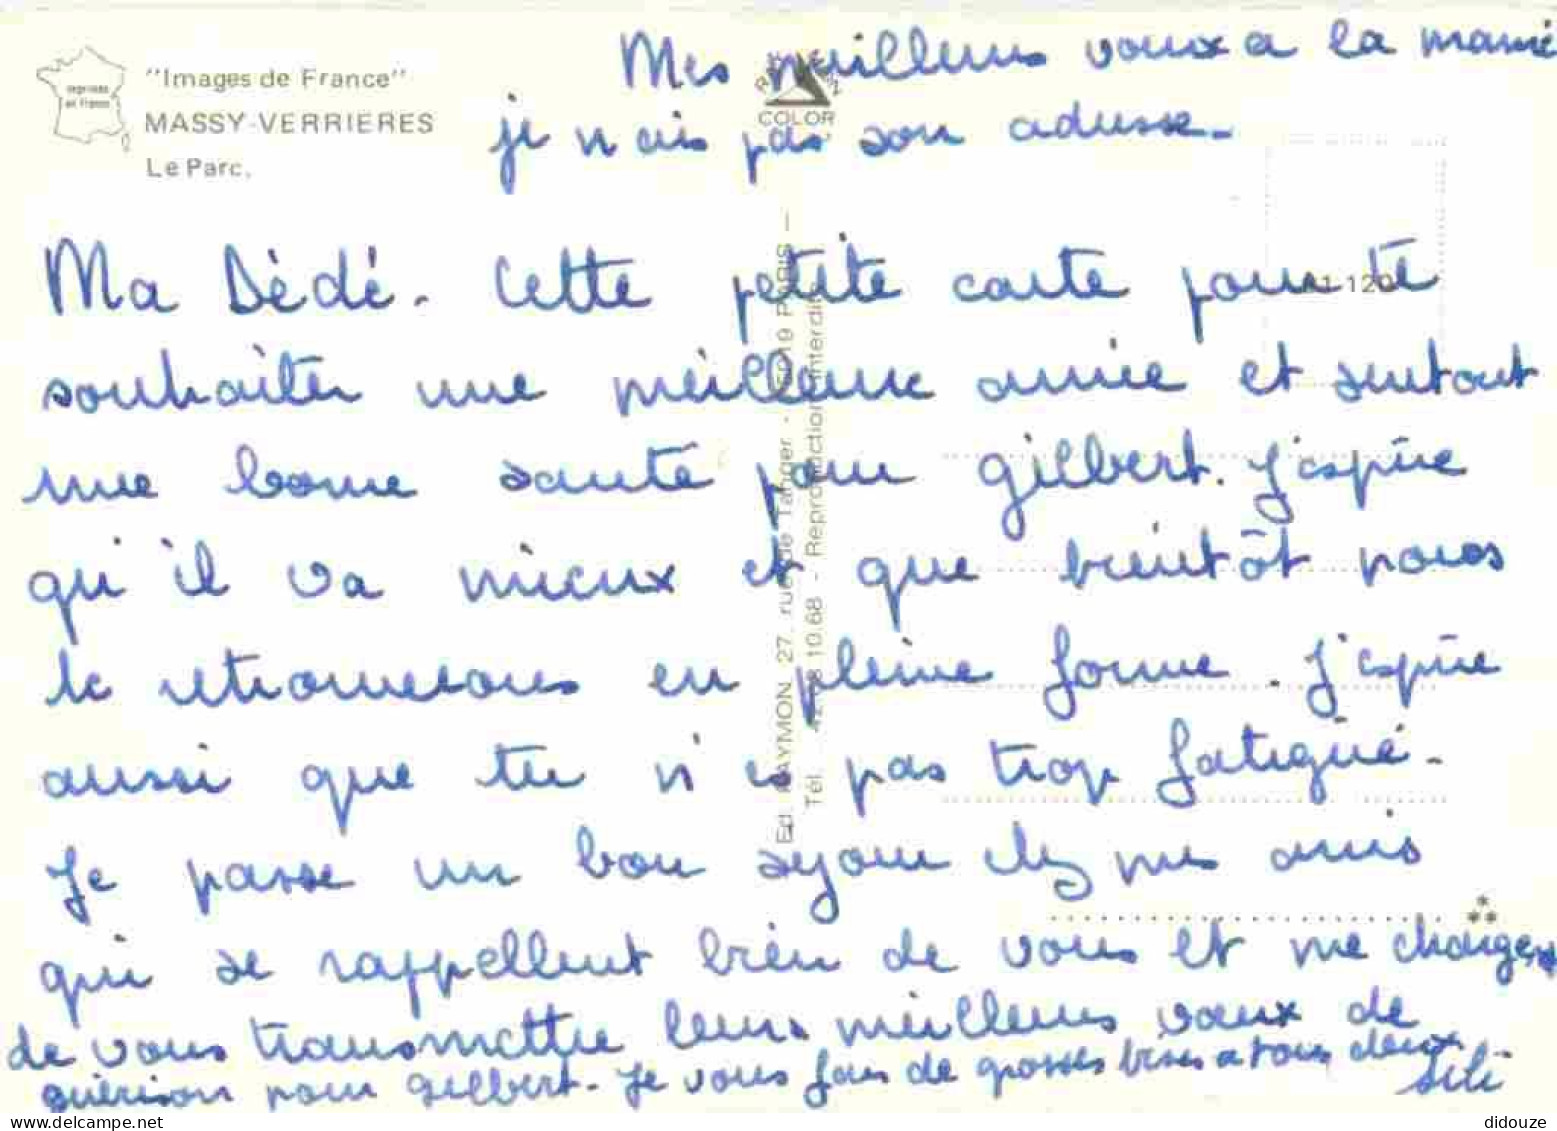 Mes meilleurs voeux a la mamie
je n ais pas son adresse.
imprimée en France
"Images de France"
MASSY-VERRIERES
Le Parc.
COLOR
Ma Dédé. Cette petite carte pour te
souhaiter une meilleure année et surtout
une bonne santé pour Gilbert. J'espère
qu'il va mieux et que bientôt nous
le retrouverons en pleine forme. J'espère
aussi que tu n'es pas trop fatigué.
Je passe un bon séjour chez mes amis
qui se rappellent bien de vous et me charge
de vous transmettre leurs meilleurs voeux de
guérison pour Gilbert. Je vous fais de grosses bises a tous deux
Lili
Ed. RAYMON 27, rue de Tanger - 75019 PARIS -
Tél. 42.08.10.68 - Reproduction interdite
didouze